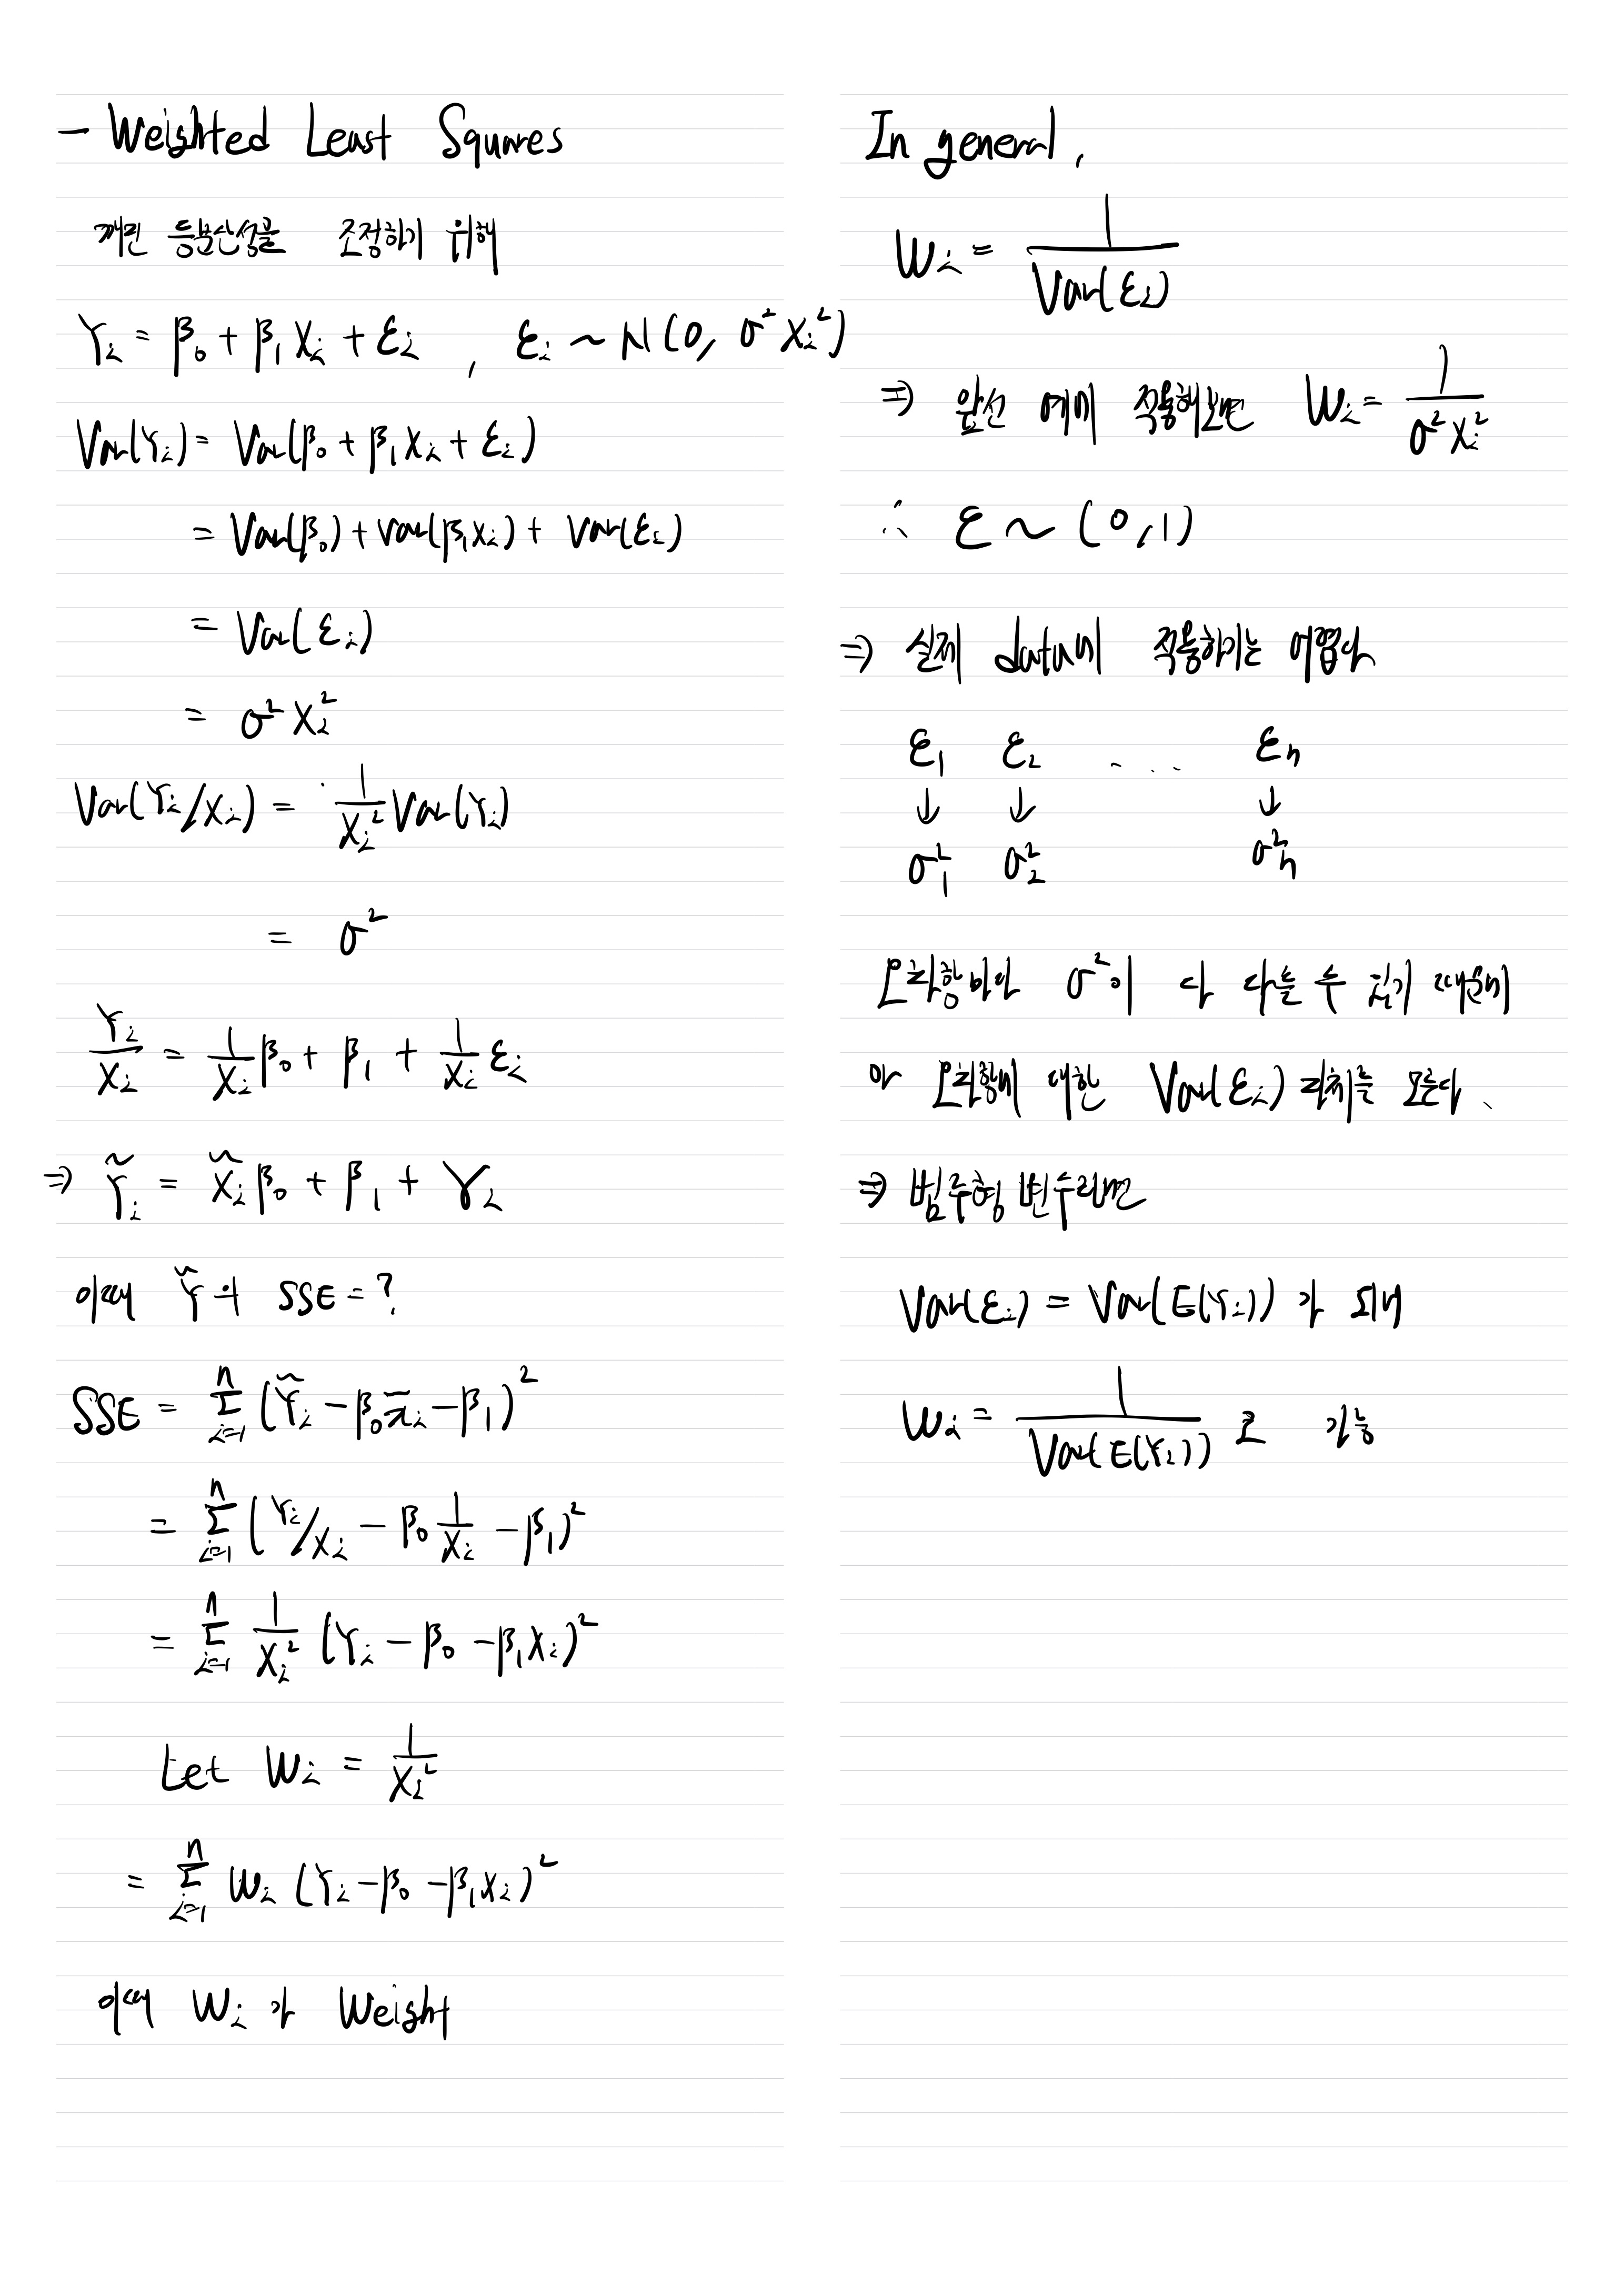 - Weighted Least Squares
깨진 등분산성을 조정하기 위해
Yᵢ = β₀ + β₁Xᵢ + εᵢ , εᵢ ~ N(0, σ²Xᵢ²)
Var(Yᵢ) = Var(β₀ + β₁Xᵢ + εᵢ)
= Var(β₀) + Var(β₁Xᵢ) + Var(εᵢ)
= Var(εᵢ)
= σ²Xᵢ²
Var(Yᵢ/Xᵢ) = 1/Xᵢ² Var(Yᵢ)
= σ²
Yᵢ/Xᵢ = 1/Xᵢ β₀ + β₁ + 1/Xᵢ εᵢ
⇒ Ỹᵢ = X̃ᵢβ₀ + β₁ + γᵢ
이때 Ỹ의 SSE = ?
SSE = Σⁿᵢ₌₁ (Ỹᵢ - β₀x̃ᵢ - β₁)²
= Σⁿᵢ₌₁ (Yᵢ/Xᵢ - β₀ 1/Xᵢ - β₁)²
= Σⁿᵢ₌₁ 1/Xᵢ² (Yᵢ - β₀ - β₁Xᵢ)²
Let Wᵢ = 1/Xᵢ²
= Σⁿᵢ₌₁ Wᵢ (Yᵢ - β₀ - β₁Xᵢ)²
이때 Wᵢ가 Weight
In general,
Wᵢ = 1/Var(εᵢ)
⇒ 앞선 예에 적용해보면 Wᵢ = 1/σ²Xᵢ²
∴ ε ~ (0, 1)
⇒ 실제 data에 적용하기는 어렵다
ε₁ ε₂ ... εₙ
↓ ↓ ↓
σ²₁ σ²₂ σ²ₙ
오차항마다 σ²이 다 다를 수 있기 때문에
각 오차항에 대한 Var(εᵢ) 자체를 모른다.
⇒ 범주형 변수라면
Var(εᵢ) = Var(E(Yᵢ))가 되어
Wᵢ = 1/Var(E(Yᵢ)) 로 가능